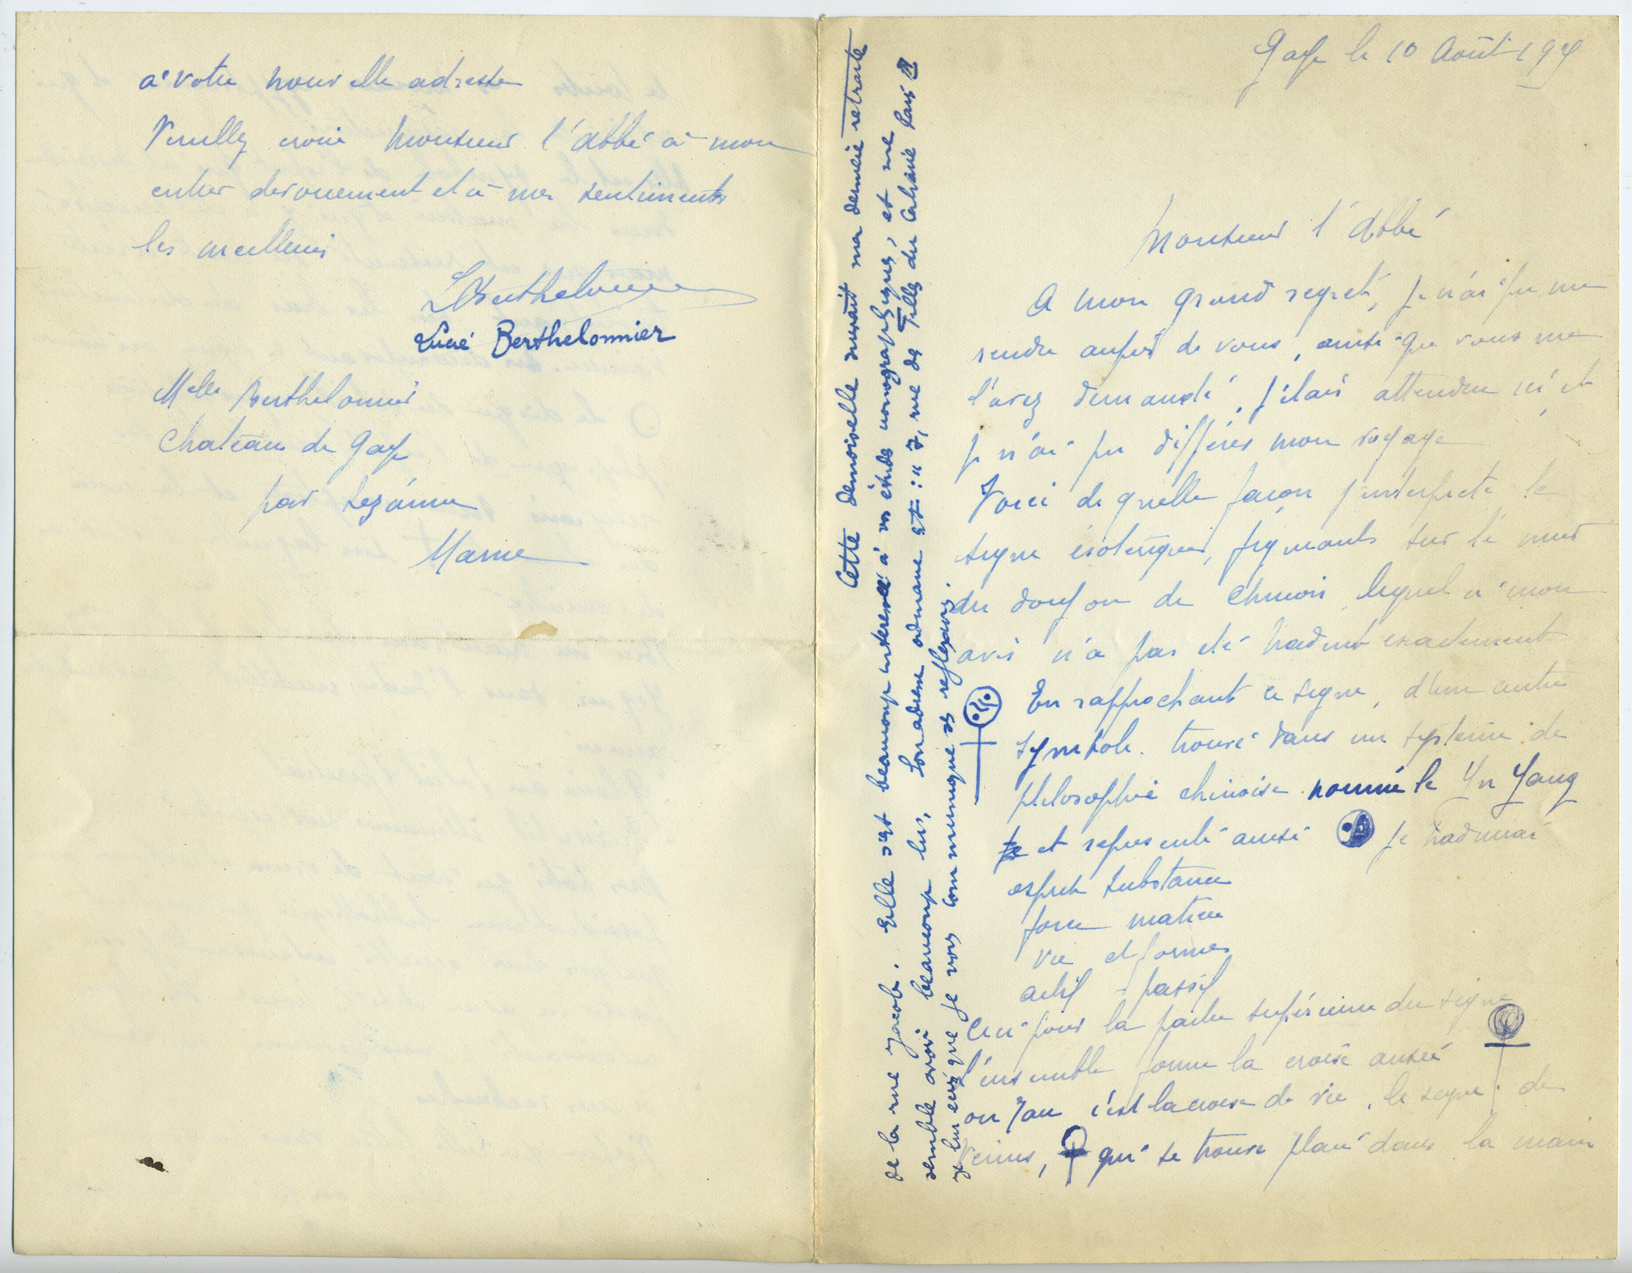 Gaye le 10 Août 19
Monsieur l'Abbé
A mon grand regret, je n'ai pu me
rendre auprès de vous, ainsi que vous me
l'avez demandé, j'étais attendue ici et
je n'ai pu différer mon voyage
Voici de quelle façon j'interprète le
signe ésotérique, figurants sur le mur
du donjon de Chinon, lequel à mon
avis n'a pas été traduit exactement
En rapprochant ce signe, d'une autre
symbole. trouvé dans un système de
philosophie chinoise nommé le Yn Yang
et représenté ainsi je traduirai
esprit substance
force matière
vie et formes
actif - passif
Ceci pour la partie supérieure du signe
l'ensemble forme la croix ansée
ou Tau c'est la croix de vie, le signe de
Vénus, ♀ qui se trouve placé dans la main
Cette demoiselle suivait ma dernière retraite
de la rue Jacob. Elle s'est beaucoup intéressée à nos études monographiques, et me
semble avoir beaucoup lus, Son adresse est : "7, rue des Filles du Calvaire Paris
que je vous communique ses réflexions.
à votre nouvelle adresse
Veuillez croire Monsieur l'abbé à mon
entier dévouement et à mes sentiments
les meilleurs
LBerthelonnier
Lucie Berthelonnier
Melle Berthelonnier
Chateau de Gaye
par Sézanne
Marne